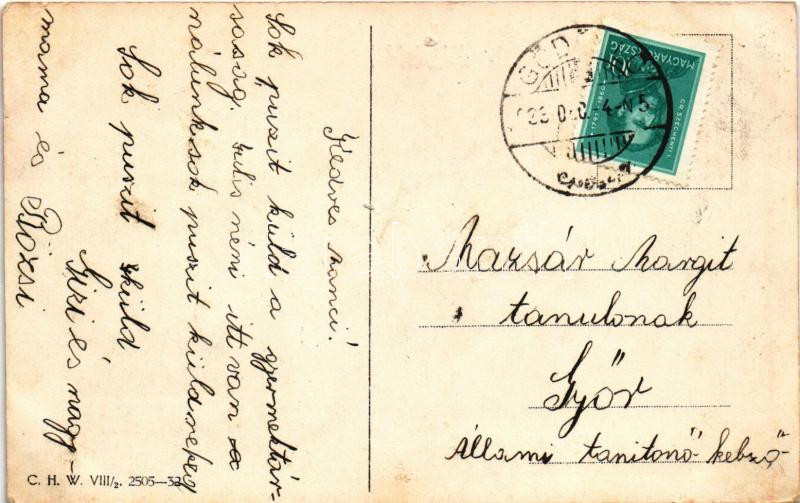 Kedves Manci!
Sok puszit küld a gyermektár-
saság. Julis néni itt van a
nálunk sok puszit küld neked
Sok puszit küld
Gizi és nagy-
mama és Rózsi
C. H. W. VIII/2. 2505—32
MAGYARORSZÁG
GR. SZÉCHENYI I.
1791-1860
Mazsár Margit
tanulonak
Győr
Állami tanitonő-kebző-